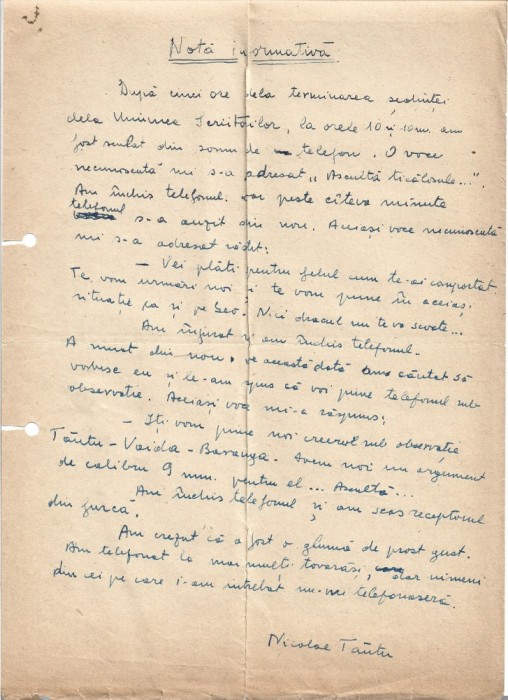 Notă informativă
După cinci ore dela terminarea ședinței
dela Uniunea Scriitorilor, la orele 10 și 10 m. am
fost sculat din somn de telefon. O voce
necunoscută mi s-a adresat „Ascultă ticălosule...".
Am închis telefonul. Iar peste câteva minute
telefonul s-a auzit din nou. Aceiași voce necunoscută
mi s-a adresat răstit:
— Vei plăti pentru felul cum te-ai comportat.
Te vom urmări noi și te vom pune în aceiași
situație ca și pe Geo. Nici dracul nu te va scoate...
Am înjurat și am închis telefonul.
A sunat din nou. De această dată am căutat să
vorbesc eu și le-am spus că voi pune telefonul sub
observație. Aceiași voce mi-a răspuns:
— Iți vom pune noi creerul sub observație
Tăutu - Vaida - Baranga. Avem noi un argument
de calibru 9 mm. pentru el... Ascultă...
Am închis telefonul și am scos receptorul
din furcă.
Am crezut că a fost o glumă de prost gust.
Am telefonat la mai mulți tovarăși, dar nimeni
din cei pe care i-am întrebat nu-mi telefonaseră.
Nicolae Tăutu